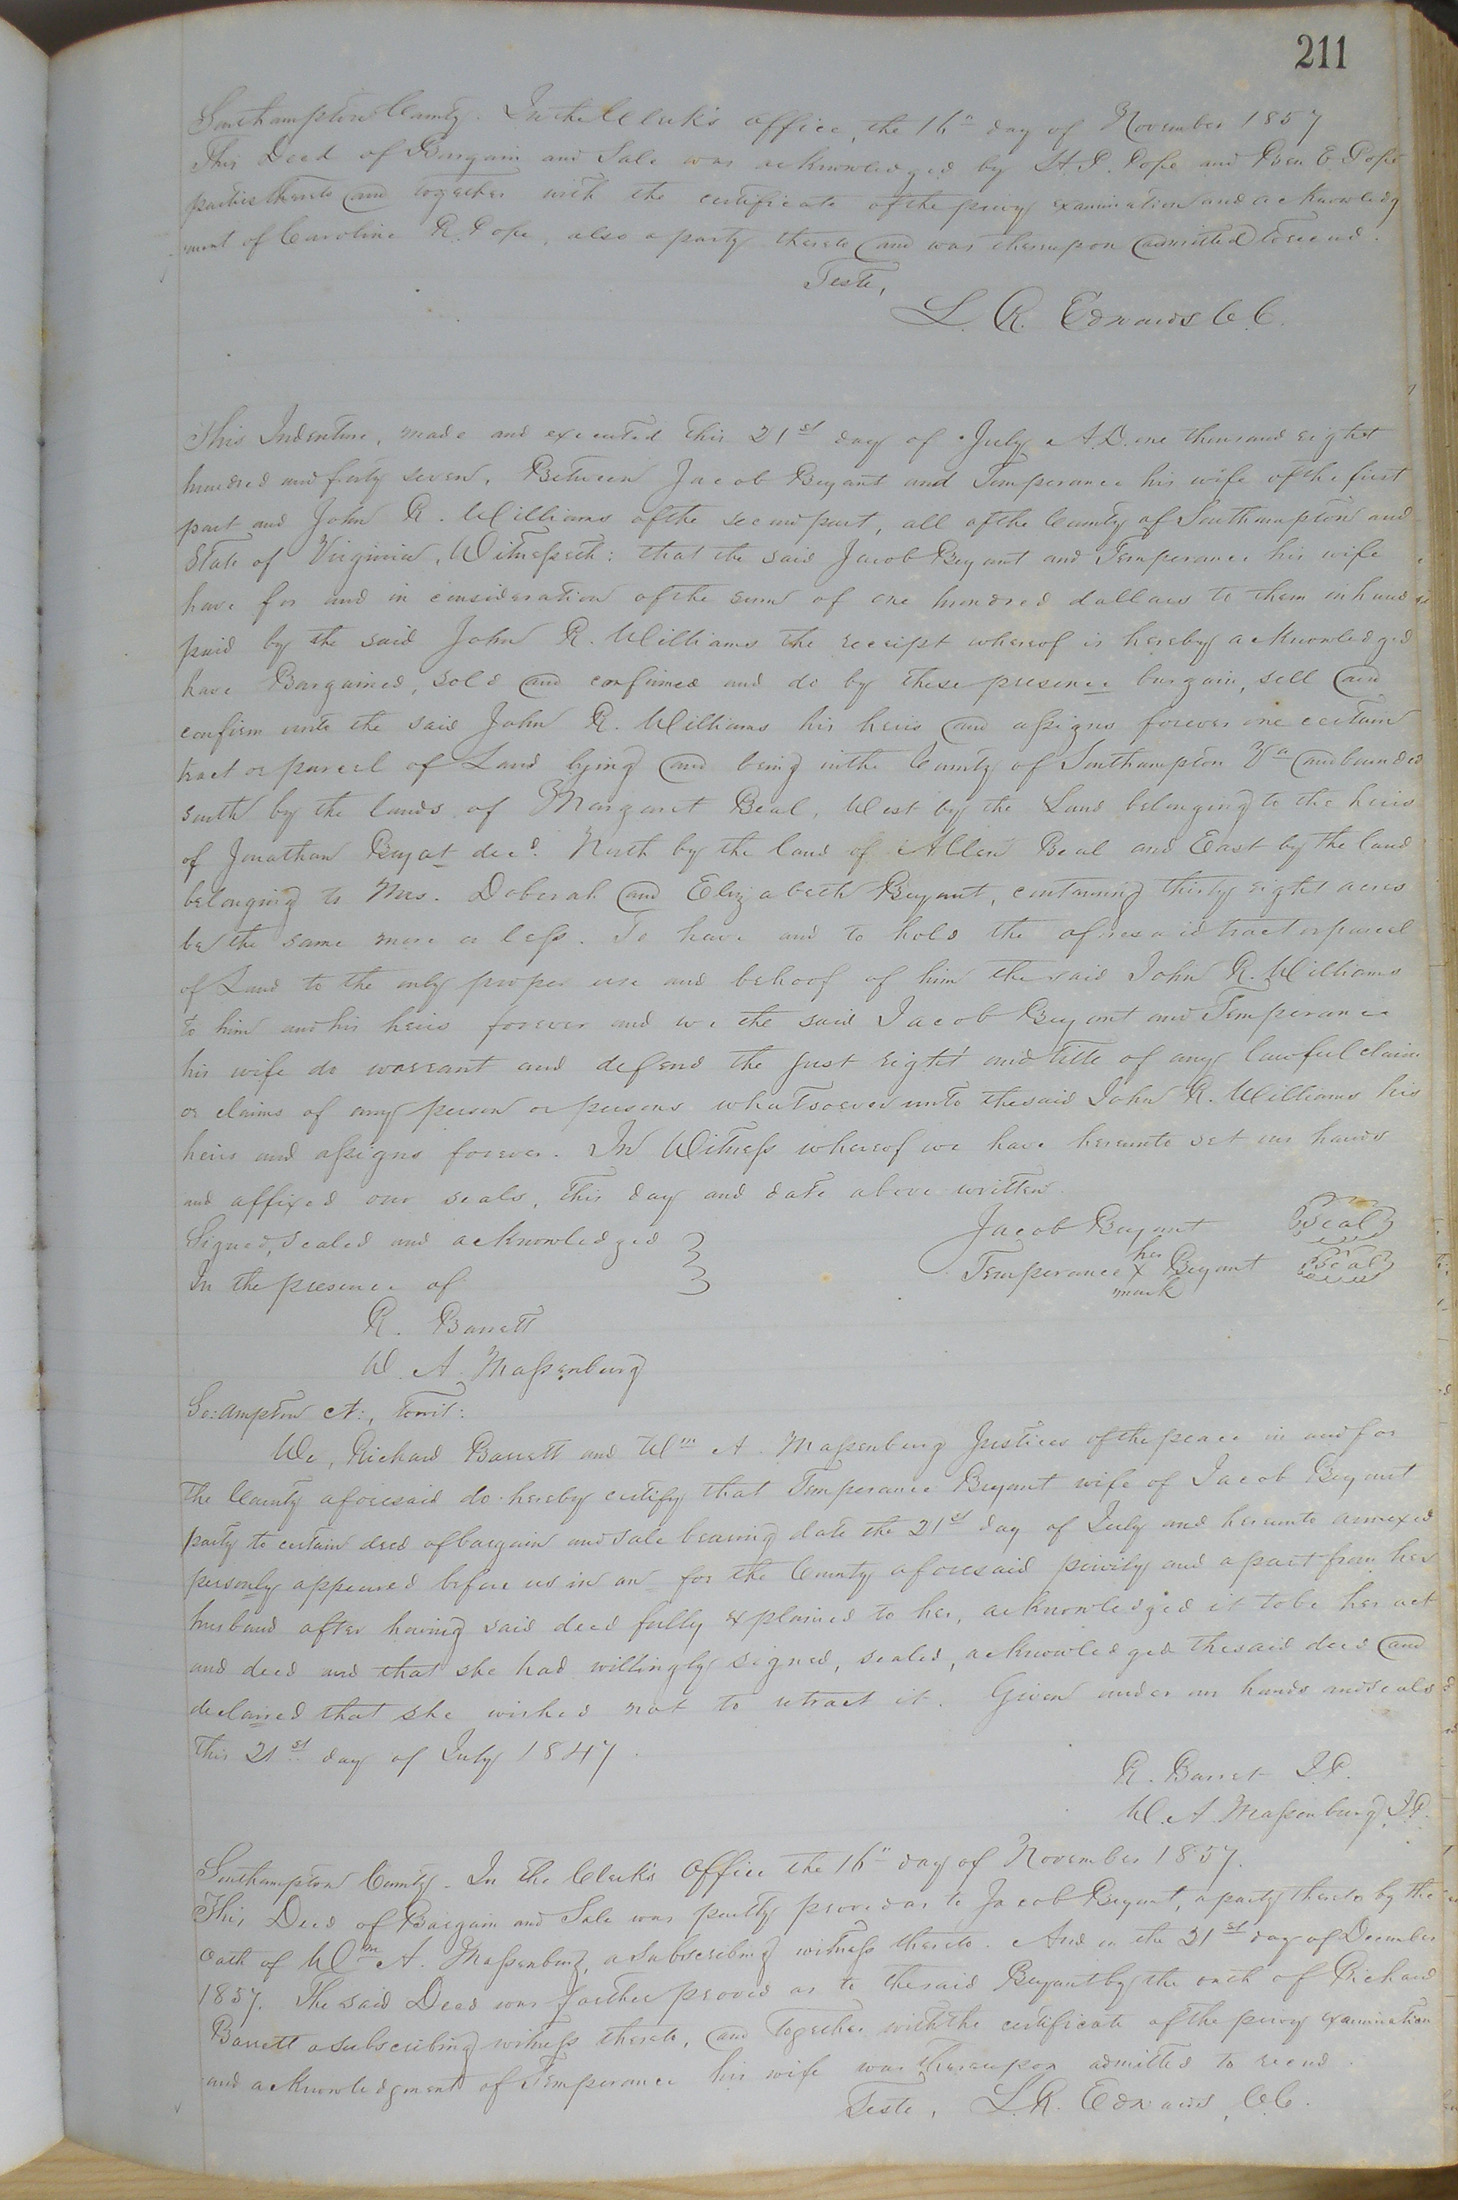 211
Southampton County. In the Clerk's office, the 16" day of November 1857
This Deed of Bargain and Sale was acknowledged by H. P. Pope and E. Pope
parties thereto and together with the certificate of the privy examination and acknowledg
ment of Caroline R. Pope, also a party thereto and was thereupon admitted to record.
Teste,
L. R. Edwards C. C.
This Indenture, made and executed this 21st day of July A.D. one thousand eight
hundred and forty seven, Between Jacob Bryant and Temperance his wife of the first
part and John R. Williams of the secon part, all of the County of Southampton and
State of Virginia, Witnesseth: that the said Jacob Bryant and Temperance his wife
have for and in consideration of the sum of one hundred dollars to them in hand
paid by the said John R. Williams the receipt whereof is hereby acknowledged
have Bargained, sold and confirmed and do by these presence bargain, sell and
confirm unto the said John R. Williams his heirs and assigns forever one certain
tract or parcel of Land lying and being in the County of Southampton Va and bounded
south by the lands of Margaret Beal, West by the Land belonging to the heirs
of Jonathan Bryat decd. North by the land of Allen Beal and East by the land
belonging to Mrs. Doberah and Elizabeth Bryant, containing thirty eight acres
be the same more or less. To have and to hold the aforesaid tract or parcel
of Land to the only proper use and behoof of him the said John R. Williams
to him and his heirs forever and we the said Jacob Bryant and Temperance
his wife do warrant and defend the just right and title of any lawful claim
or claims of any person or persons whatsoever unto the said John R. Williams his
heirs and assigns forever. In Witness whereof we have hereunto set our hands
and affixed our seals, this day and date above written
Signed, sealed and acknowledged
In the presence of
Jacob Bryant Seal
Temperance her X mark Bryant Seal
R. Barrett
W. A. Massenburg
So:ampton Ct:, towit:
We, Richard Barrett and Wm A. Massenburg Justices of the peace in and for
the County aforesaid do hereby certify that Temperance Bryant wife of Jacob Bryant
party to certain deed of bargain and sale bearing date the 21st day of July and hereunto annexed
personly appeared before us in an for the County aforesaid privily and apart from her
husband after having said deed fully explained to her, acknowledged it to be her act
and deed and that she had willingly signed, sealed, acknowledged the said deed and
declared that she wished not to retract it. Given under our hands and seals
this 21st day of July 1847.
R. Barret J.P.
W. A. Massenburg J.P.
Southampton County. In the Clerk's Office the 16" day of November 1857.
This Deed of Bargain and Sale was partly proved as to Jacob Bryant, a party thereto by the
oath of Wm A. Massenburg, a subscribing witness thereto. And on the 21st day of December
1857. The said Deed was further proved as to the said Bryant by the oath of Richard
Barrett a subscribing witness thereto, and together with the certificate of the privy examination
and acknowledgment of Temperance his wife was thereupon admitted to record.
Teste, L. R. Edwards, C.C.